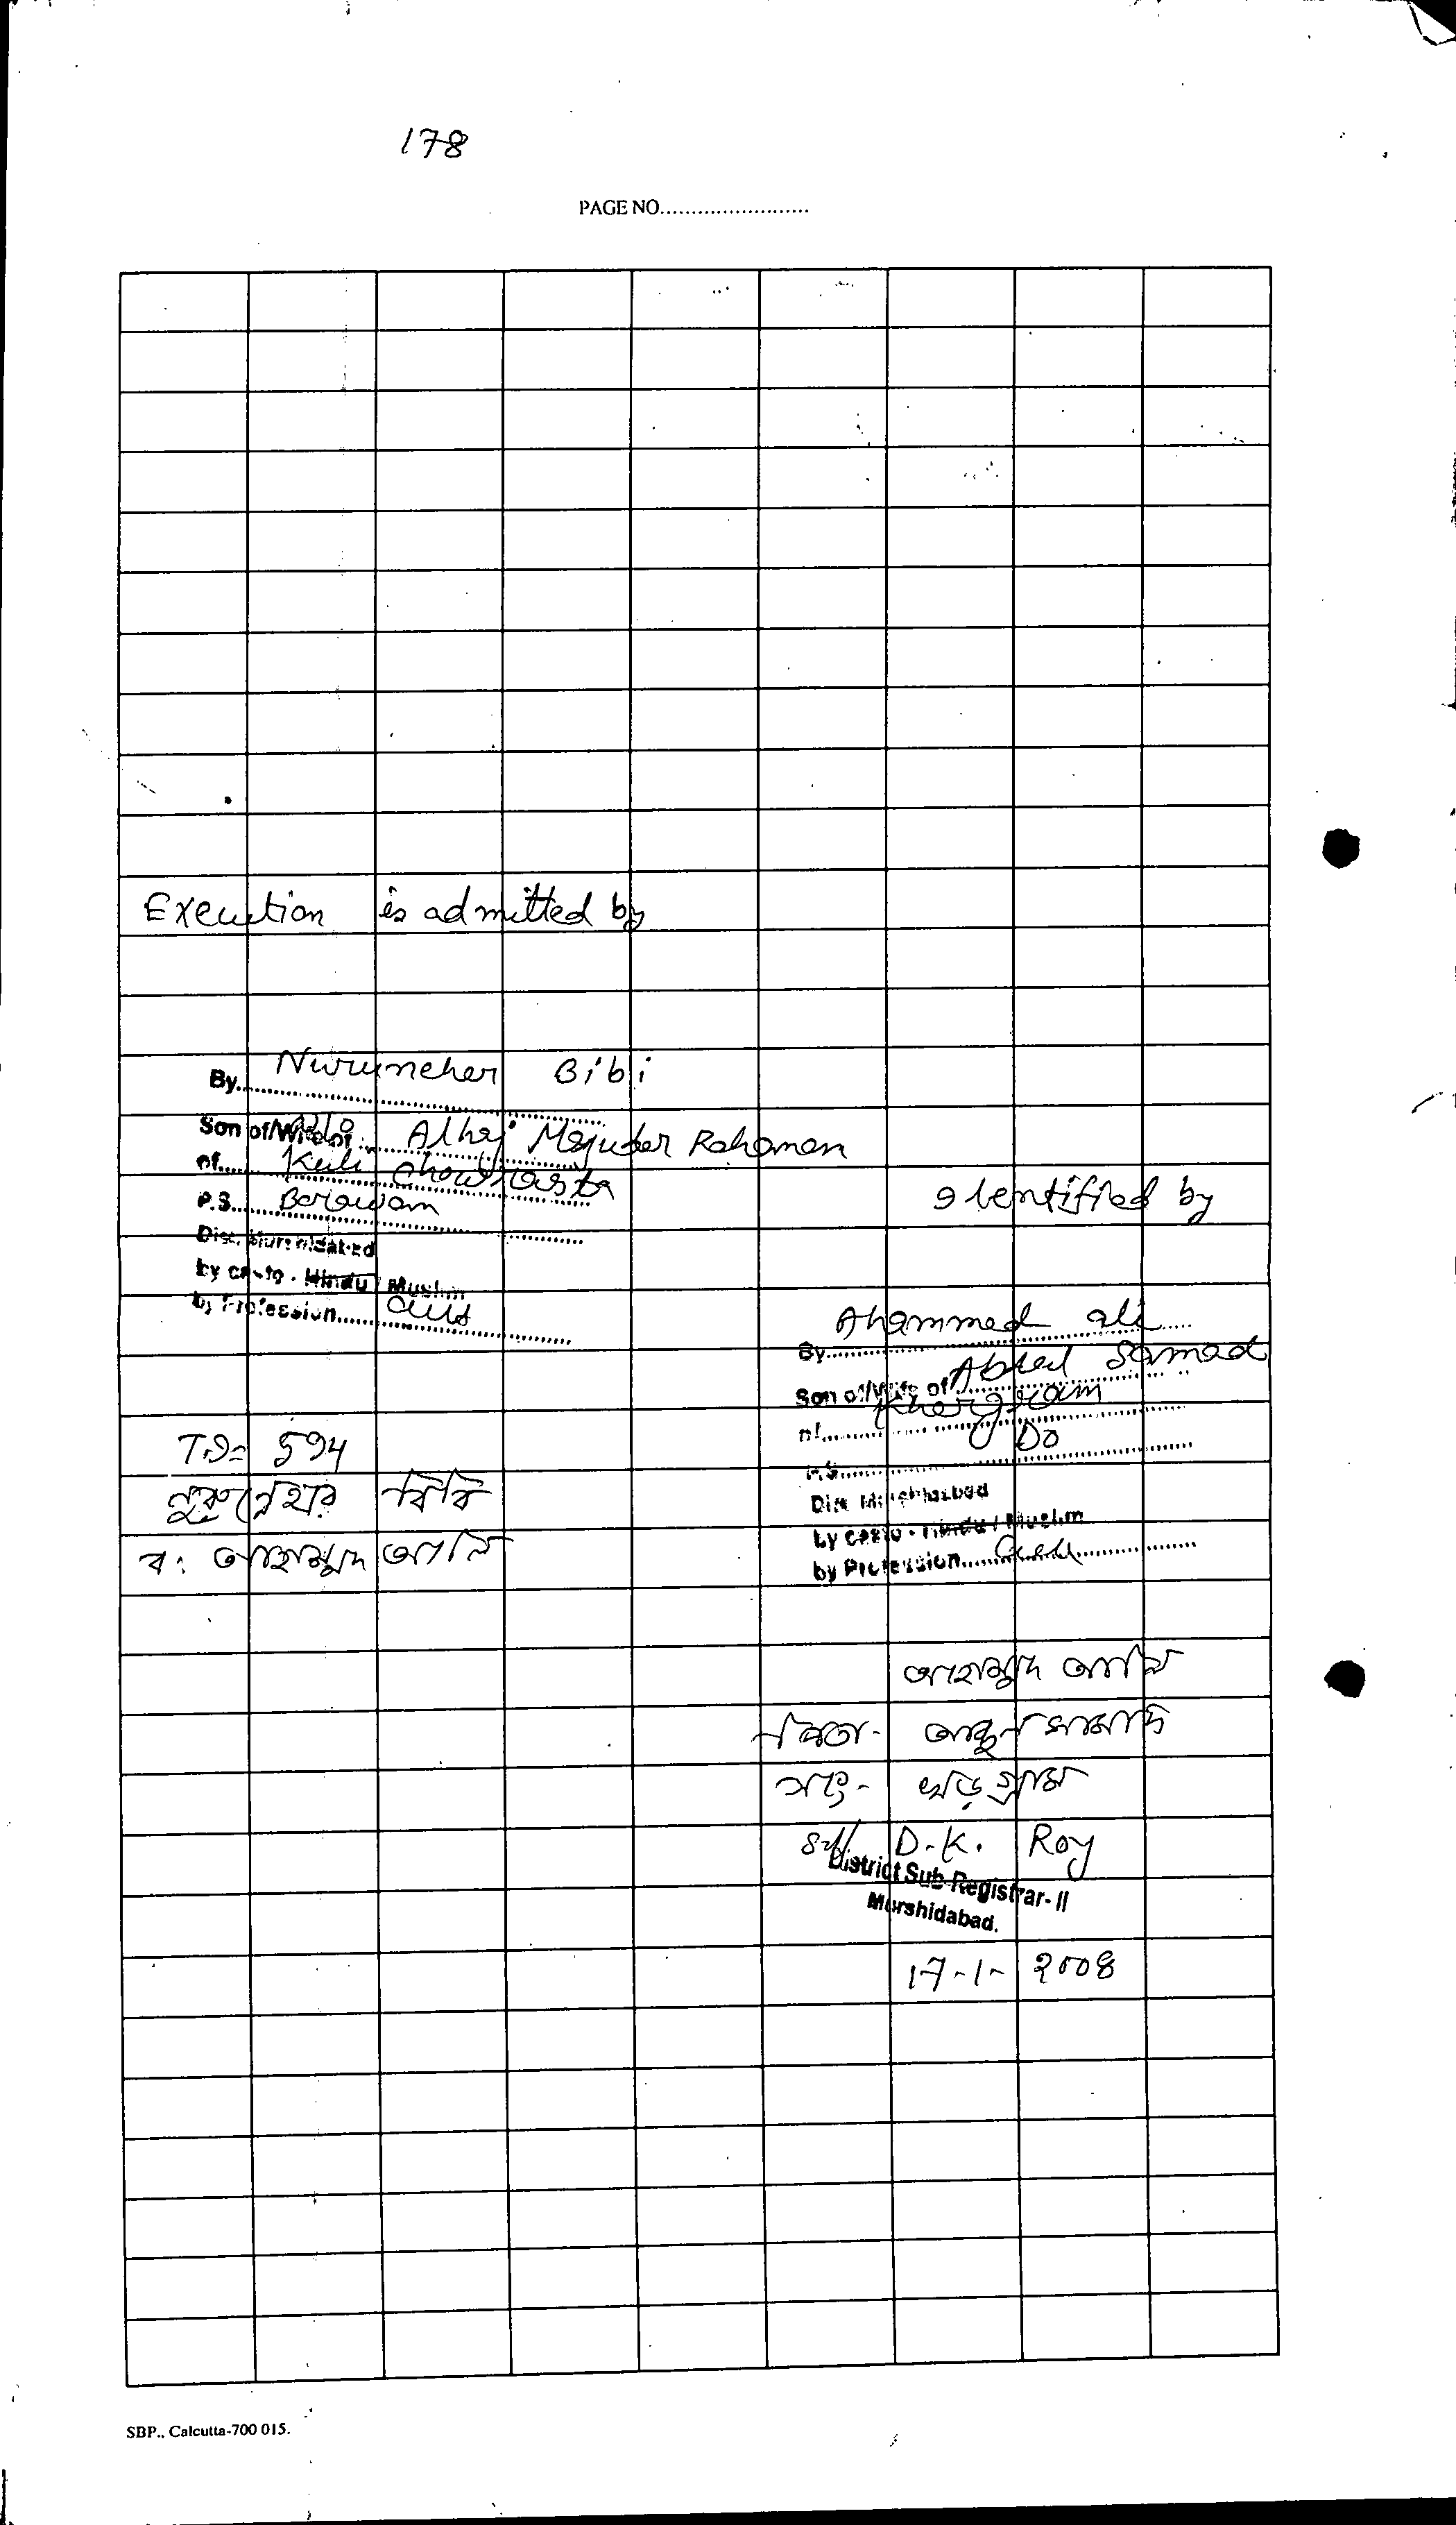 178
PAGE NO.........................
Execution is admitted by
By Nurunneher Bibi
Son of/Wife of Alhaj Mejuder Rahaman
of Kuli Chowrasta
P.S. Borowan
Dist. Murshidabad
by caste - Hindu / Muslim
by Profession
Identified by
Ahammed ali
By
Son of/Wife of Abdul Samad
of Khargram
P.S. Do
Dist. Murshidabad
by caste - Hindu / Muslim
by Profession
594
নুরুন্নেহার বিবি
ব: আহাম্মদ আলি
আহাম্মদ আলি
পিতা- আব্দুল সামাদ
সাং- খড়গ্রাম
Sd/ D.K. Roy
District Sub-Registrar-II
Murshidabad.
17-1-2008
SBP., Calcutta-700 015.